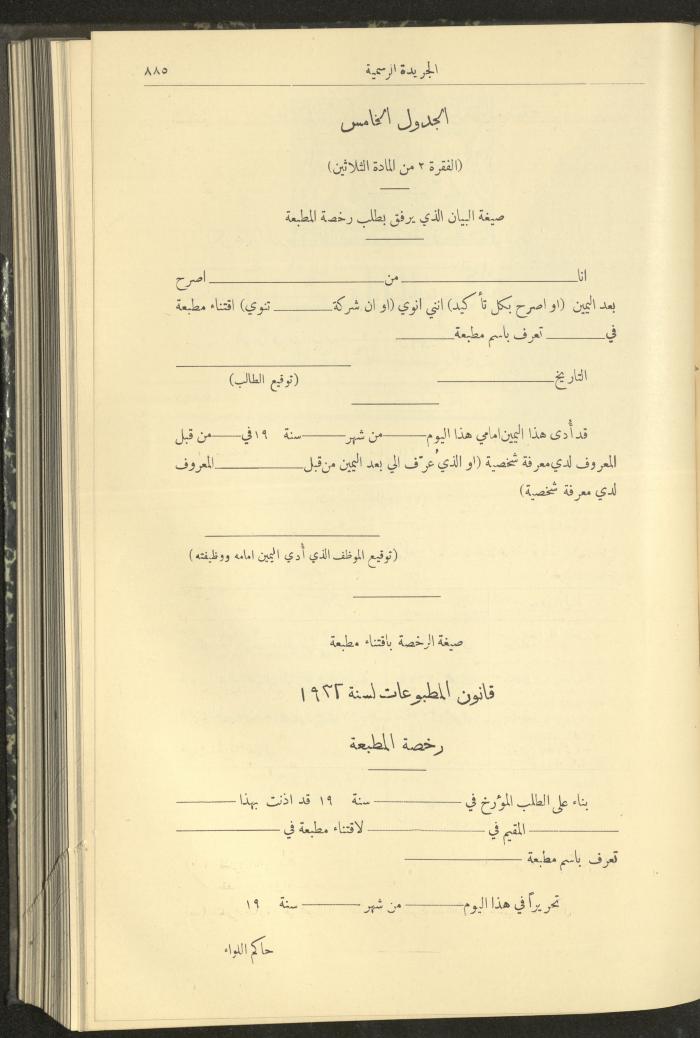 الجريدة الرسمية ٨٨٥
الجدول الخامس
(الفقرة ٢ من المادة الثلاثين)
صيغة البيان الذي يرفق بطلب رخصة المطبعة
انا ــــــ من ــــــ اصرح
بعد اليمين (او اصرح بكل تأكيد) انني انوي (او ان شركة ــــــ تنوي) اقتناء مطبعة
في ــــــ تعرف باسم مطبعة ــــــ
التاريخ ــــــ
(توقيع الطالب)
قد أُدى هذا اليمين امامي هذا اليوم ــــــ من شهر ــــــ سنة ١٩ في ــــــ من قبل
المعروف لدي معرفة شخصية (او الذي عُرّف الي بعد اليمين من قبل ــــــ المعروف
لدي معرفة شخصية)
(توقيع الموظف الذي أُدي اليمين امامه ووظيفته)
صيغة الرخصة باقتناء مطبعة
قانون المطبوعات لسنة ١٩٣٢
رخصة المطبعة
بناء على الطلب المؤرخ في ــــــ سنة ١٩ قد اذنت بهذا ــــــ
ــــــ المقيم في ــــــ لاقتناء مطبعة في ــــــ
تعرف باسم مطبعة ــــــ
تحريراً في هذا اليوم ــــــ من شهر ــــــ سنة ١٩
حاكم اللواء